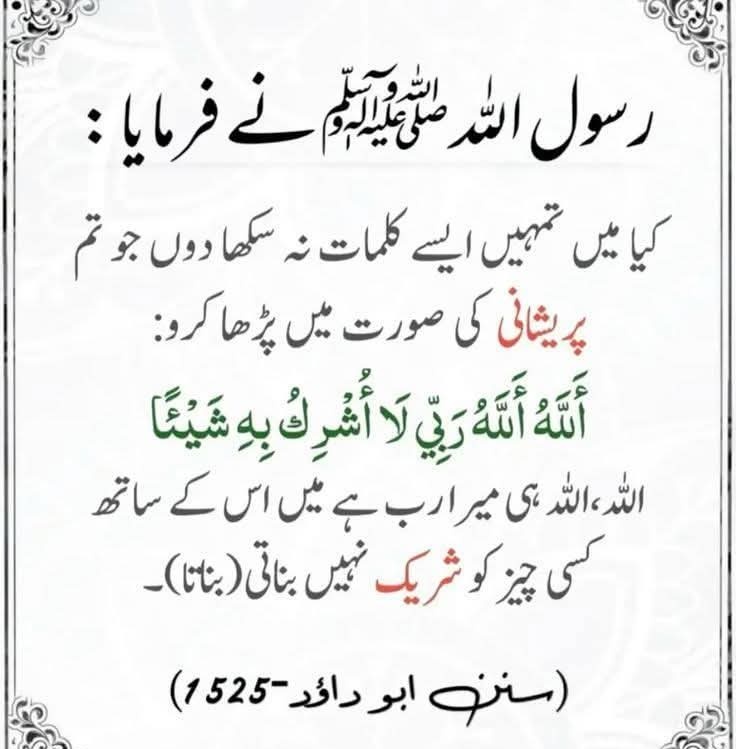 رسول اللہ ﷺ نے فرمایا :
کیا میں تمہیں ایسے کلمات نہ سکھا دوں جو تم
پریشانی کی صورت میں پڑھا کرو:
أَللَّهُ أَللَّهُ رَبِّي لَا أُشْرِكُ بِهِ شَيْئًا
اللہ،اللہ ہی میرا رب ہے میں اس کے ساتھ
کسی چیز کو شریک نہیں بناتی(بناتا)۔
(سنن ابو داؤد-1525)